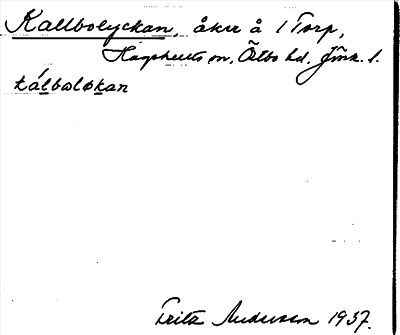 Kallbolyckan, åker å 1 Torp,
Hagshults sn, Östbo hd. Jönk. l.
kálboløkan
Fritz Andersson 1937.